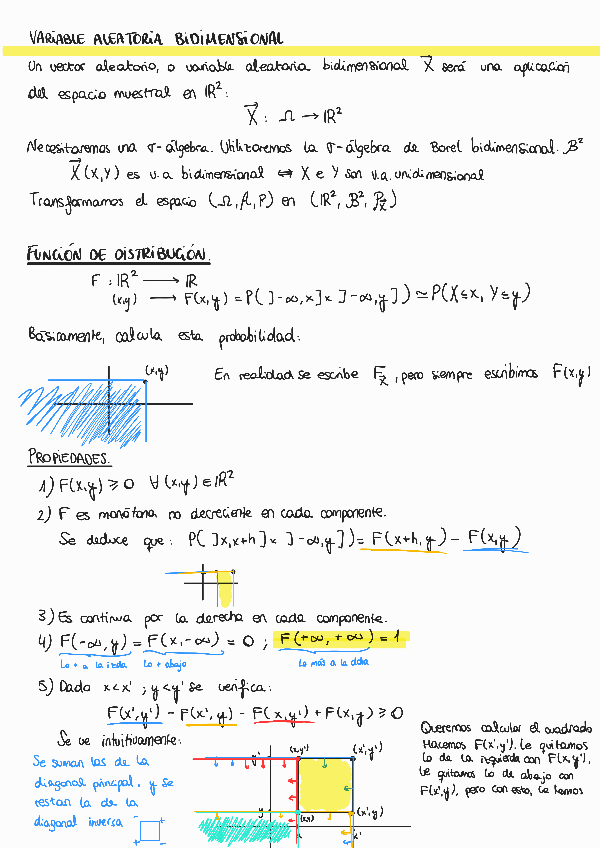 VARIABLE ALEATORIA BIDIMENSIONAL
Un vector aleatorio, o variable aleatoria bidimensional X⃗ será una aplicación
del espacio muestral en ℝ²:
X⃗ : Ω → ℝ²
Necesitaremos una σ-álgebra. Utilizaremos la σ-álgebra de Borel bidimensional. B²
X⃗(X,Y) es v.a bidimensional ⇔ X e Y son v.a. unidimensional
Transformamos el espacio (Ω, A, P) en (ℝ², B², P_X⃗)
FUNCIÓN DE DISTRIBUCIÓN.
F : ℝ² ⟶ ℝ
(x,y) ⟶ F(x,y) = P( ]-∞,x] × ]-∞,y] ) ≃ P(X≤x, Y≤y)
Básicamente, calcula esta probabilidad:
(x,y)
En realidad se escribe F_X⃗, pero siempre escribimos F(x,y)
PROPIEDADES.
1) F(x,y) ≥ 0 ∀(x,y) ∈ ℝ²
2) F es monótona no decreciente en cada componente.
Se deduce que: P( ]x,x+h] × ]-∞,y] ) = F(x+h,y) - F(x,y)
3) Es continua por la derecha en cada componente.
4) F(-∞,y) = F(x,-∞) = 0 ; F(+∞,+∞) = 1
Lo + a la izda Lo + abajo Lo más a la dcha
5) Dado x<x' ; y<y' se verifica:
F(x',y') - F(x',y) - F(x,y') + F(x,y) ≥ 0
Se ve intuitivamente:
Se suman las de la
diagonal principal, y se
restan la de la
diagonal inversa
- +
+ -
y' (x,y') (x',y')
y (x,y) (x',y)
Queremos calcular el cuadrado
Hacemos F(x',y'). Le quitamos
lo de la izquierda con F(x,y'),
Le quitamos lo de abajo con
F(x',y), pero con esto, le hemos